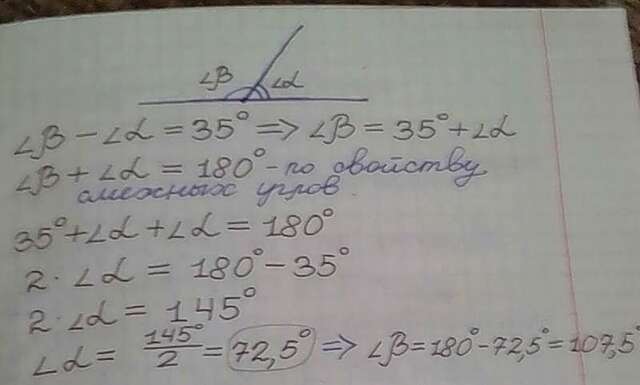 ∠β ∠α
∠β - ∠α = 35° => ∠β = 35° + ∠α
∠β + ∠α = 180° - по свойству
смежных углов.
35° + ∠α + ∠α = 180°
2 · ∠α = 180° - 35°
2 · ∠α = 145°
∠α = 145°/2 = 72,5° => ∠β = 180° - 72,5° = 107,5°